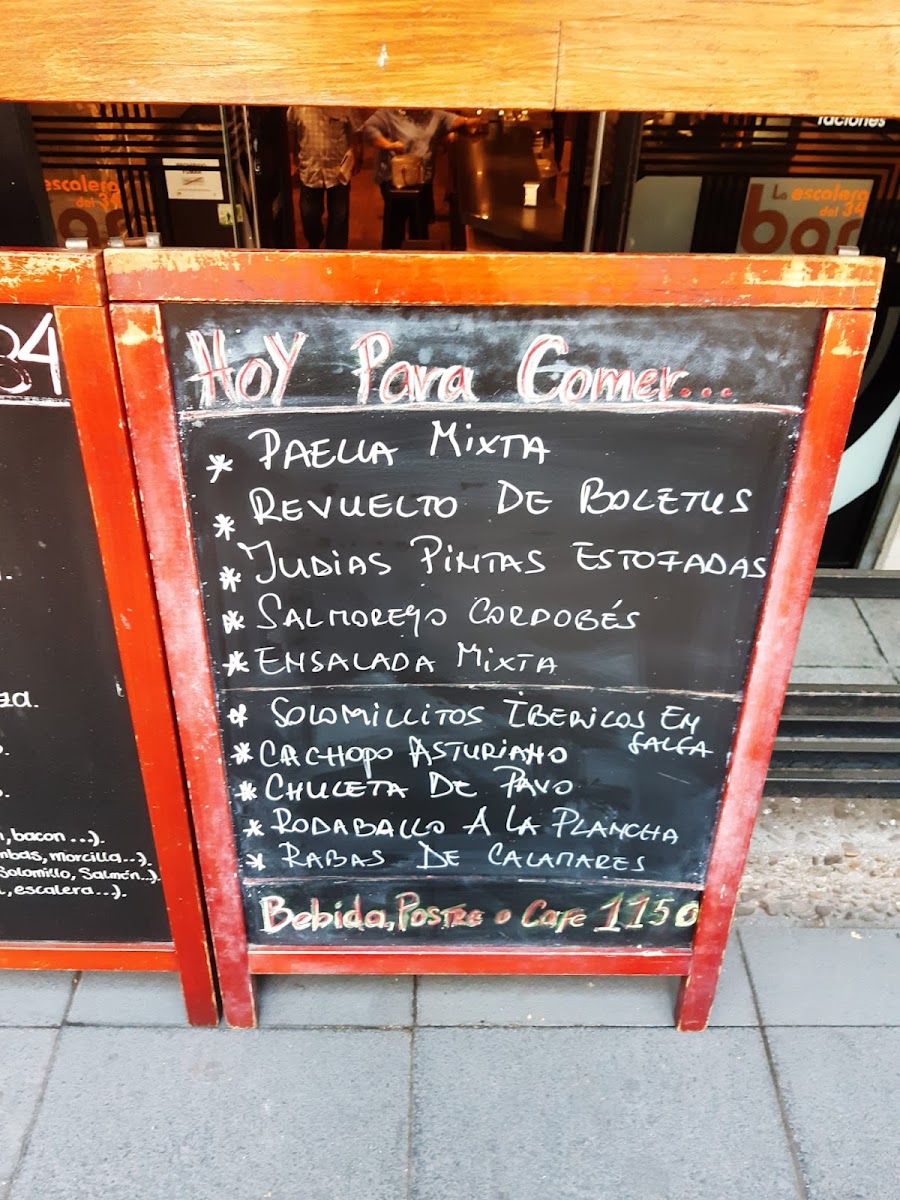 raciones
escalera
del 34
bar
La escalera
del 34
bar
34
Hoy Para Comer...
* PAELLA MIXTA
* REVUELTO DE BOLETUS
* JUDIAS PINTAS ESTOFADAS
* SALMOREJO CORDOBÉS
* ENSALADA MIXTA
* SOLOMILLITOS IBERICOS EN
SALSA
* CACHOPO ASTURIANO
* CHULETA DE PAVO
* RODABALLO A LA PLANCHA
* RABAS DE CALAMARES
Bebida, POSTRE o Cafe 1150
,bacon...).
mbas, morcilla...).
Solomillo, Salmón..).
, escalera...).